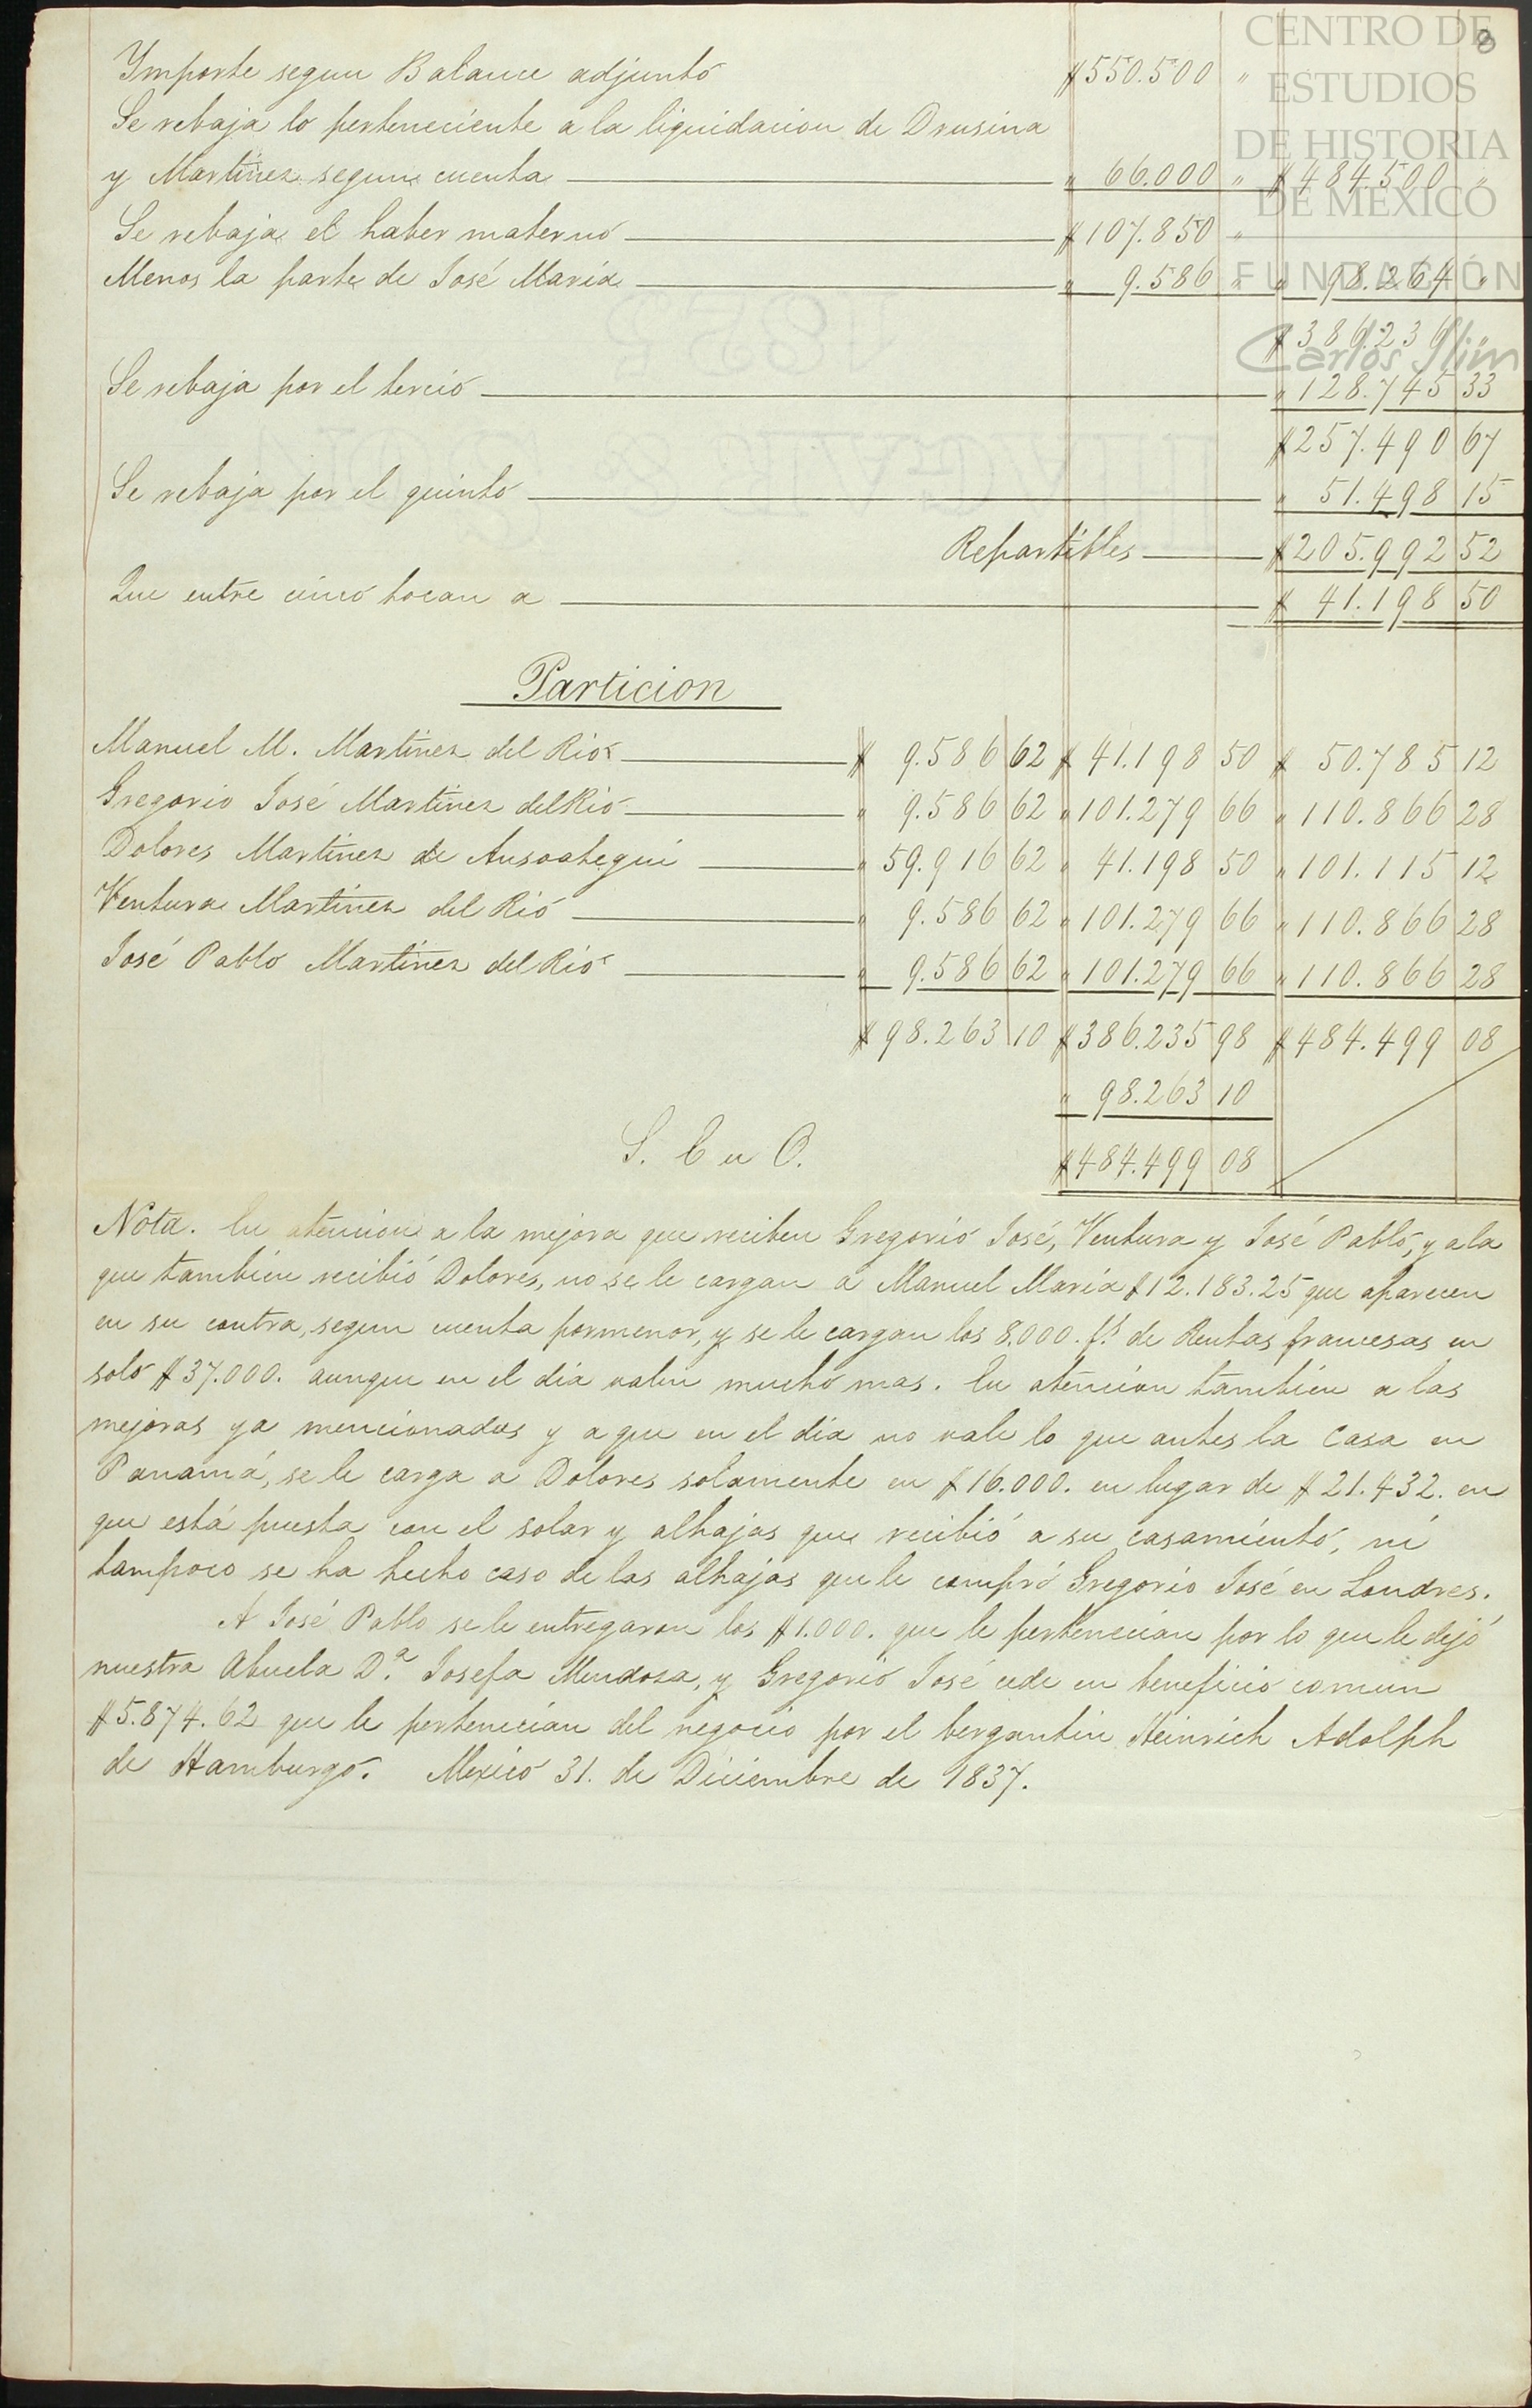 CENTRO DE
ESTUDIOS
DE HISTORIA
DE MÉXICO
FUNDACIÓN
Carlos Slim
8
Ymporte segun Balance adjunto $550.500 "
Se rebaja lo perteneciente a la liquidacion de Drusina
y Martinez segun cuenta " 66.000 " $484.500 "
Se rebaja el haber materno $107.850 "
Menos la parte de José Maria " 9.586 " " 98.264 "
$386.236 "
Se rebaja por el tercio " 128.745 33
$257.490 67
Se rebaja por el quinto " 51.498 15
Repartibles $205.992 52
Que entre cinco tocan a $ 41.198 50
Particion
Manuel M. Martinez del Rio $ 9.586 62 $ 41.198 50 $ 50.785 12
Gregorio José Martinez del Rio " 9.586 62 " 101.279 66 " 110.866 28
Dolores Martinez de Ansoategui " 59.916 62 " 41.198 50 " 101.115 12
Ventura Martinez del Rio " 9.586 62 " 101.279 66 " 110.866 28
José Pablo Martinez del Rio " 9.586 62 " 101.279 66 " 110.866 28
$98.263 10 $386.235 98 $484.499 08
" 98.263 10
S. E u O. $484.499 08
Nota. En atencion a la mejora que reciben Gregorio José, Ventura y José Pablo, y a la
que tambien recibió Dolores, no se le cargan á Manuel Maria $12.183.25 que aparecen
en su contra, segun cuenta pormenor, y se le cargan los 8.000. fs. de Rentas francesas en
solo $37.000. aunque en el dia valen mucho mas. En atencion tambien a las
mejoras ya mencionadas y a que en el dia no vale lo que antes la Casa en
Panamá, se le carga a Dolores solamente en $16.000. en lugar de $21.432. en
que está puesta con el solar y alhajas que recibió a su casamiento, ni
tampoco se ha hecho caso de las alhajas que le compró Gregorio José en Londres.
A José Pablo se le entregaron los $1.000. que le pertenecian por lo que le dejó
nuestra Abuela D.ª Josefa Mendoza, y Gregorio José cede en beneficio comun
$5.874.62 que le pertenecian del negocio por el bergantin Heinrich Adolph
de Hamburgo. Mexico 31. de Diciembre de 1837.